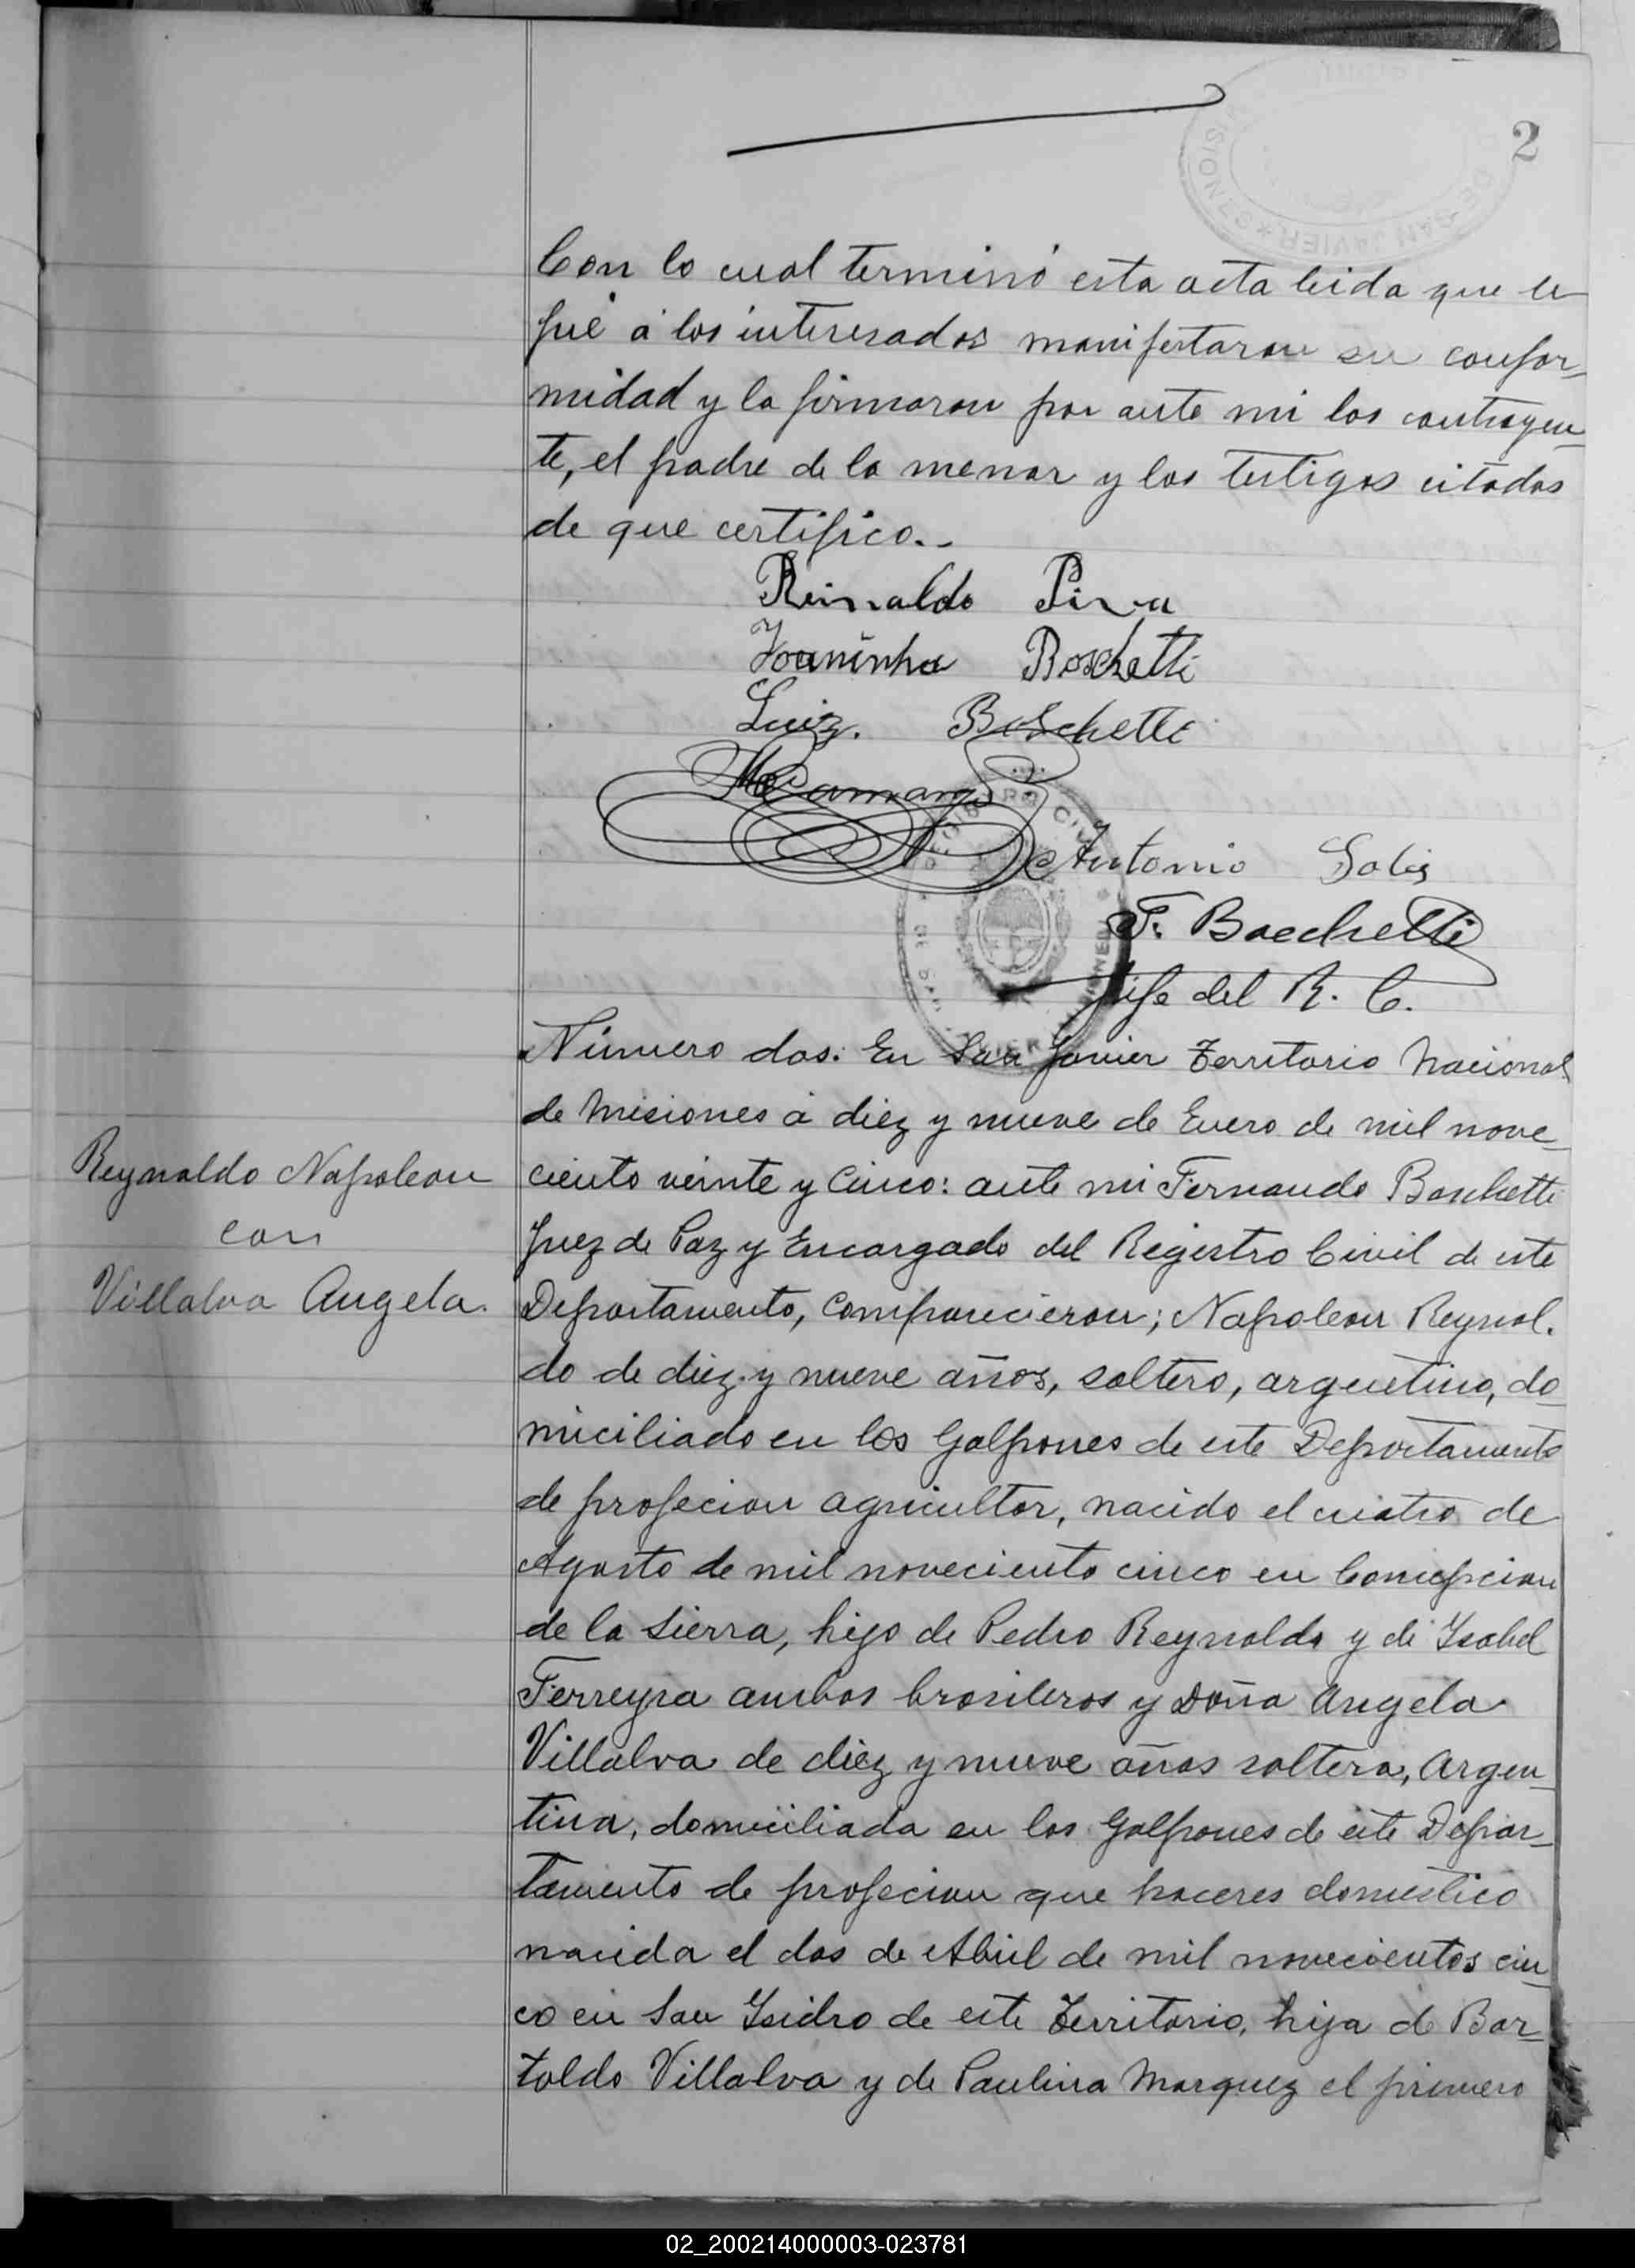 2
Con lo cual terminó esta acta leida que le
fué á los interesados manifestaron su confor-
midad y la firmaron por ante mi los contrayen-
te, el padre de la menor y los testigos citados
de que certifico.-
Reinaldo Piva
Joaninha Boschetti
Luiz. Boschetti
Camargo
Antonio Solis
F. Boschetti
Jefe del R. C.
Número dos: En San Javier Territorio Nacional
de Misiones á diez y nueve de Enero de mil nove-
ciento veinte y Cinco: ante mi Fernando Boschetti
Juez de Paz y Encargado del Registro Civil de este
Departamento, Comparecieron; Napoleon Reynol.
do de diez y nueve años, soltero, argentino, do-
miciliado en los Galpones de este Departamento
de profecion agricultor, nacido el cuatro de
Agosto de mil noveciento cinco en Concepcion
de la Sierra, hijo de Pedro Reynaldo y de Ysabel
Ferreyra ambos brasileros y Doña Angela
Villalva de diez y nueve años soltera, Argen-
tina, domiciliada en los Galpones de este Depar-
tamento de profecion que haceres domestico
nacida el dos de Abril de mil novecientos cin-
co en San Ysidro de este Territorio, hija de Bar-
toldo Villalva y de Paulina Marquez el primero
Reynaldo Napoleon
con
Villalva Angela.
02_200214000003-023781